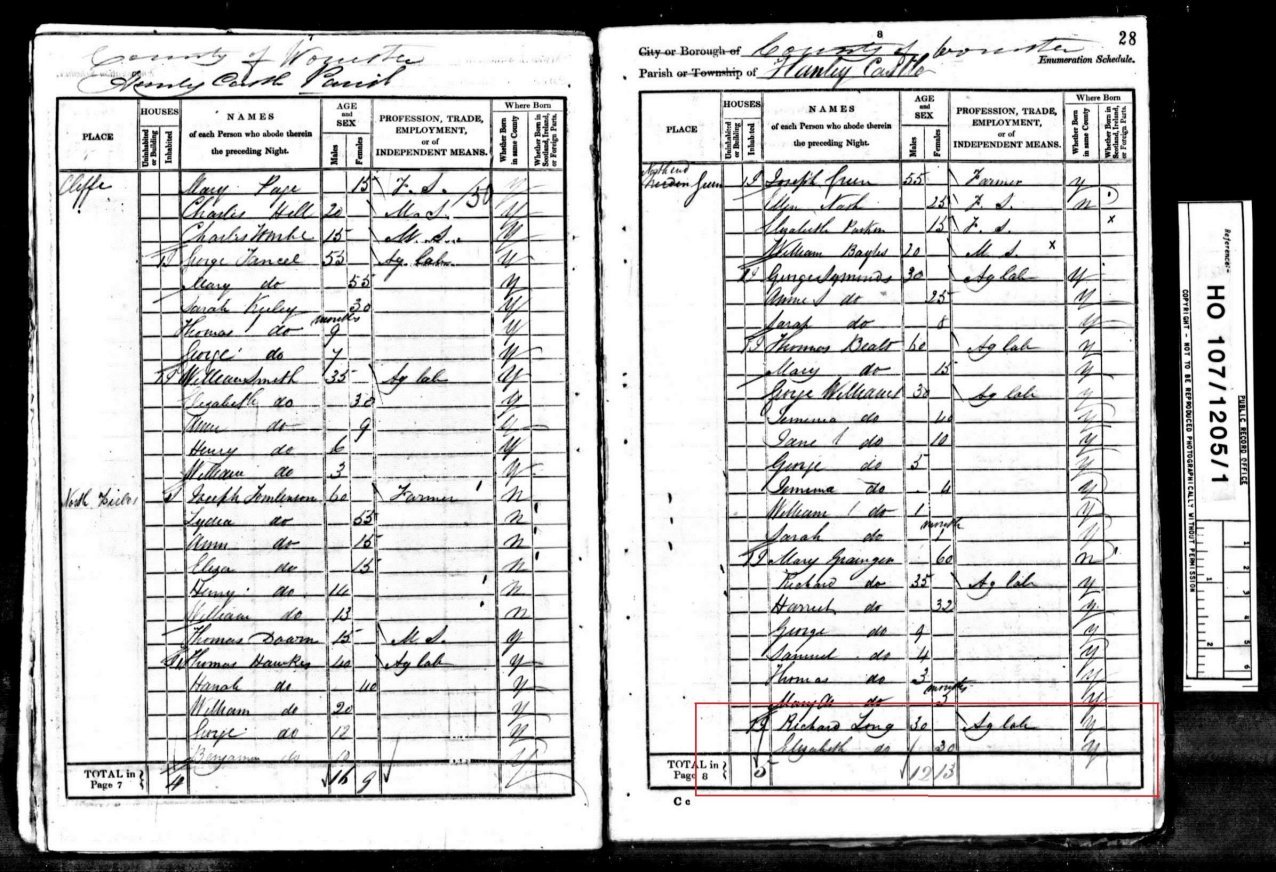 County of Worcester
Hanley Castle Parish
PLACE
HOUSES
Uninhabited or Building
Inhabited
NAMES
of each Person who abode therein
the preceding Night.
AGE
and
SEX
Males
Females
PROFESSION, TRADE,
EMPLOYMENT,
or of
INDEPENDENT MEANS.
Where Born
Whether Born in same County
Whether Born in Scotland, Ireland, or Foreign Parts.
Cliffe Mary Page 15 F. S. 50 y
Charles Hill 20 M. S. y
Charles 15 M. S. y
George 55 Ag lab y
Mary do 55 y
Sarah 30 y
Thomas do months 9 y
George do 7 y
1 William Smith 35 Ag lab y
Elizabeth do 30 y
Ann do 9 y
Henry do 6 y
William do 3 y
North 1 Joseph Tomlinson 60 Farmer n
Lydia do 55 n
Ann do 15 n
Eliza do 15 n
Henry do 14 n
William do 13 n
Thomas 15 M S. y
Thomas Hawkes 40 Ag lab y
Hanah do 40 y
William do 20 y
George do 12 y
Benjamin do 10 y
TOTAL in
Page 7 4 16 9
8
28
City or Borough of County of Worcester
Enumeration Schedule.
Parish or Township of Hanley Castle
PLACE
HOUSES
Uninhabited or Building
Inhabited
NAMES
of each Person who abode therein
the preceding Night.
AGE
and
SEX
Males
Females
PROFESSION, TRADE,
EMPLOYMENT,
or of
INDEPENDENT MEANS.
Where Born
Whether Born in same County
Whether Born in Scotland, Ireland, or Foreign Parts.
North end
Green 1 Joseph Green 55 Farmer y
Nash 25 F. S. n
Elizabeth 15 F. S. x
William Bayles 20 M S. x
George Symonds 30 Ag lab y
Anne do 25 y
Sarah do 8 y
Thomas 60 Ag lab y
Mary do 15 y
George Williams 30 Ag lab y
Jemima do 40 y
Jane do 10 y
George do 5 y
Jemima do 4 y
William do 1 y
Sarah do month 1 y
Mary Grainger 60 n
Richard do 35 Ag lab y
Harriet do 32 y
George do 9 y
Samuel do 4 y
Thomas do 3 y
Mary A do months 3 y
Richard Long 30 Ag lab y
Elizabeth do 20 y
TOTAL in
Page 8 5 12 13
C c
Reference:-
HO 107/1205/1
PUBLIC RECORD OFFICE
COPYRIGHT - NOT TO BE REPRODUCED PHOTOGRAPHICALLY WITHOUT PERMISSION
1
2
3
4
5
6
1
2